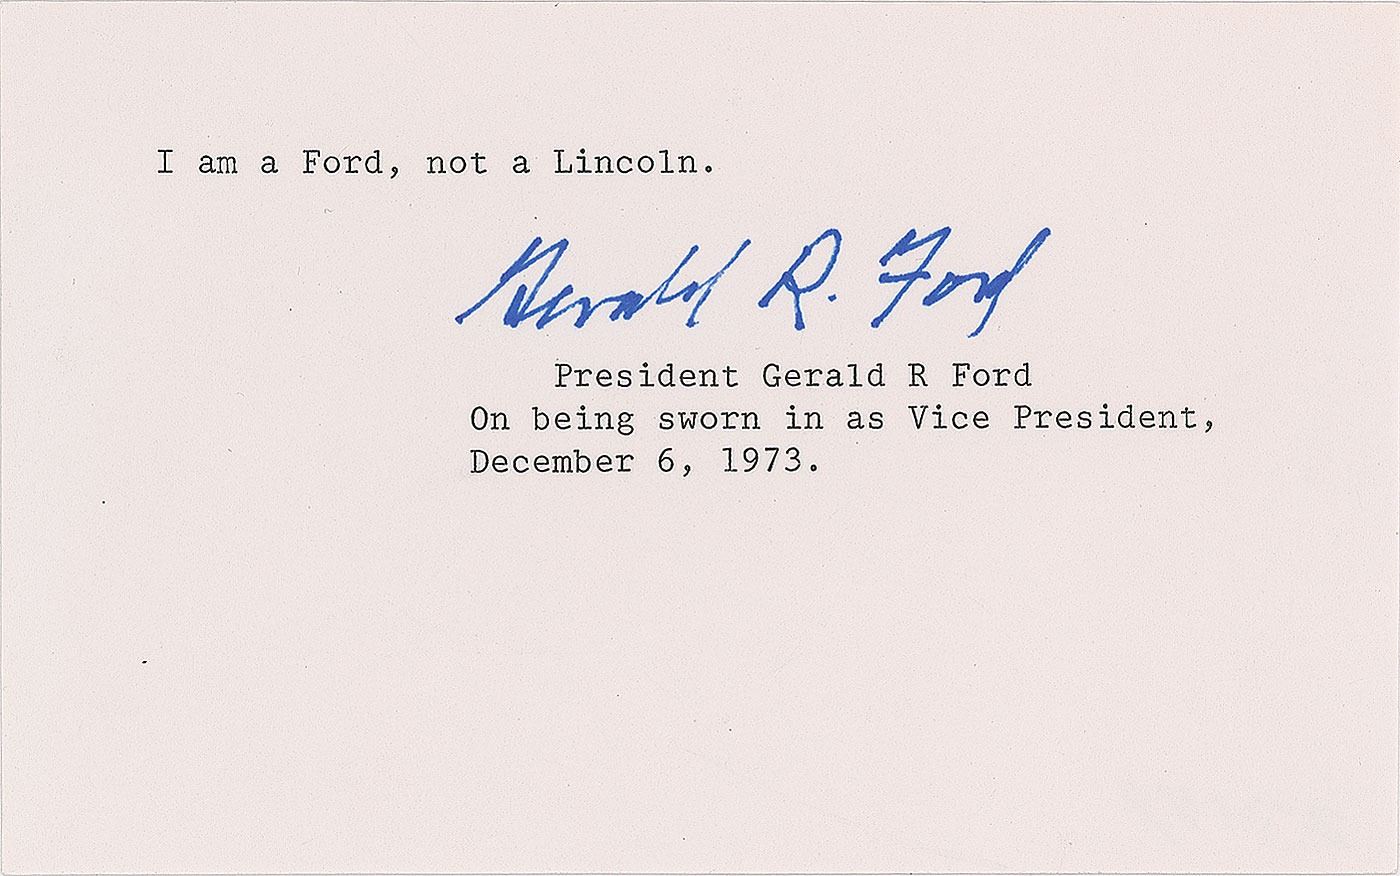 I am a Ford, not a Lincoln.
Gerald R. Ford
President Gerald R Ford
On being sworn in as Vice President,
December 6, 1973.